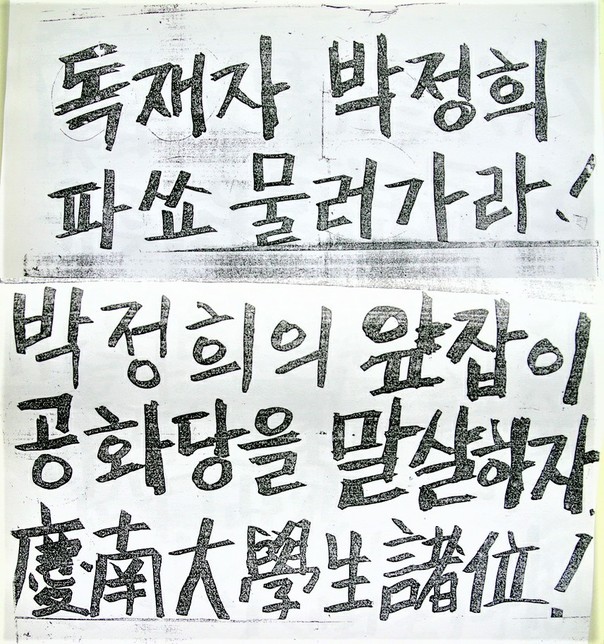 독재자 박정희
파쑈 물러가라!
박정희의 앞잡이
공화당을 말살하자.
慶南大學生諸位!